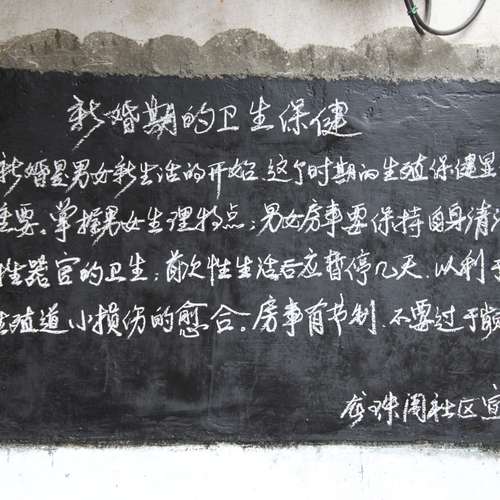 新婚期的卫生保健
新婚是男女新生活的开始.这个时期的生殖保健显
重要。掌握男女生理特点；男女房事要保持自身清洁
性器官的卫生；首次性生活后应暂停几天.以利于
生殖道小损伤的愈合。房事有节制.不要过于频
龙珠阁社区宣